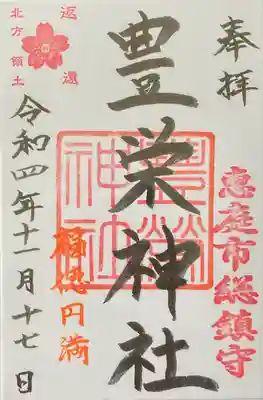 奉拝
恵庭市総鎮守
豊栄神社
豊榮神社
福徳円満
返還
北方領土
令和四年十一月十七日